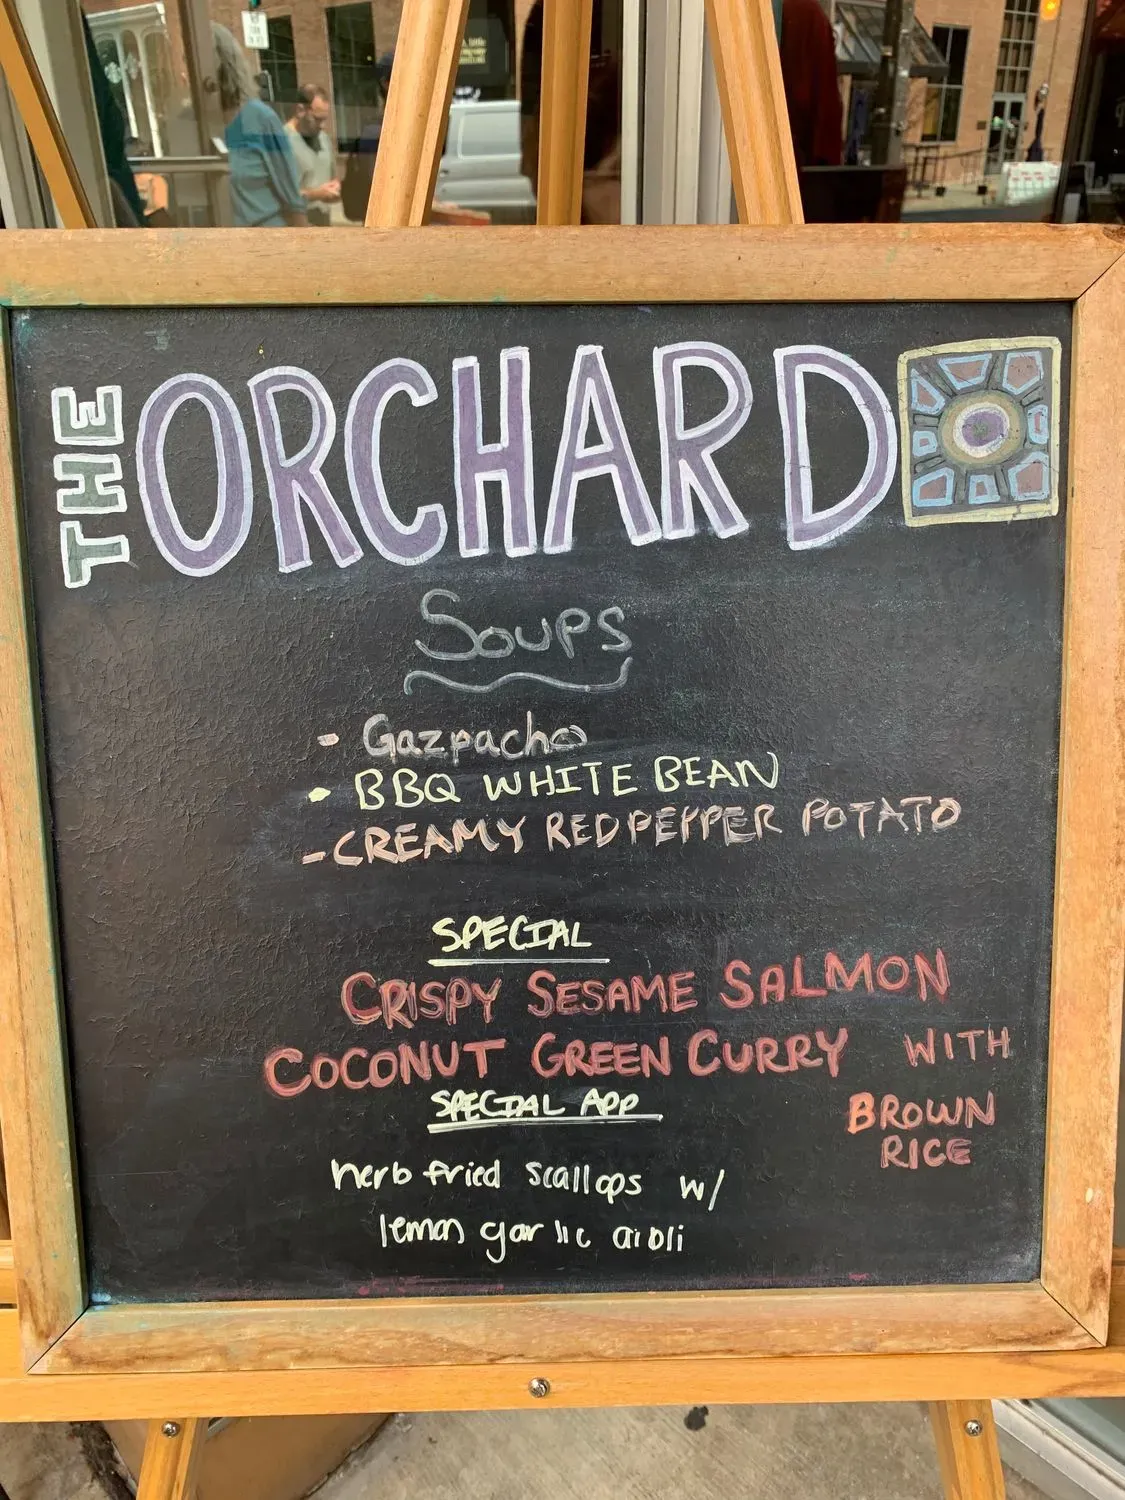 THE ORCHARD
Soups
- Gazpacho
• BBQ WHITE BEAN
- CREAMY RED PEPPER POTATO
SPECIAL
CRISPY SESAME SALMON
COCONUT GREEN CURRY WITH
BROWN
RICE
SPECIAL APP
herb fried scallops w/
lemon garlic aioli